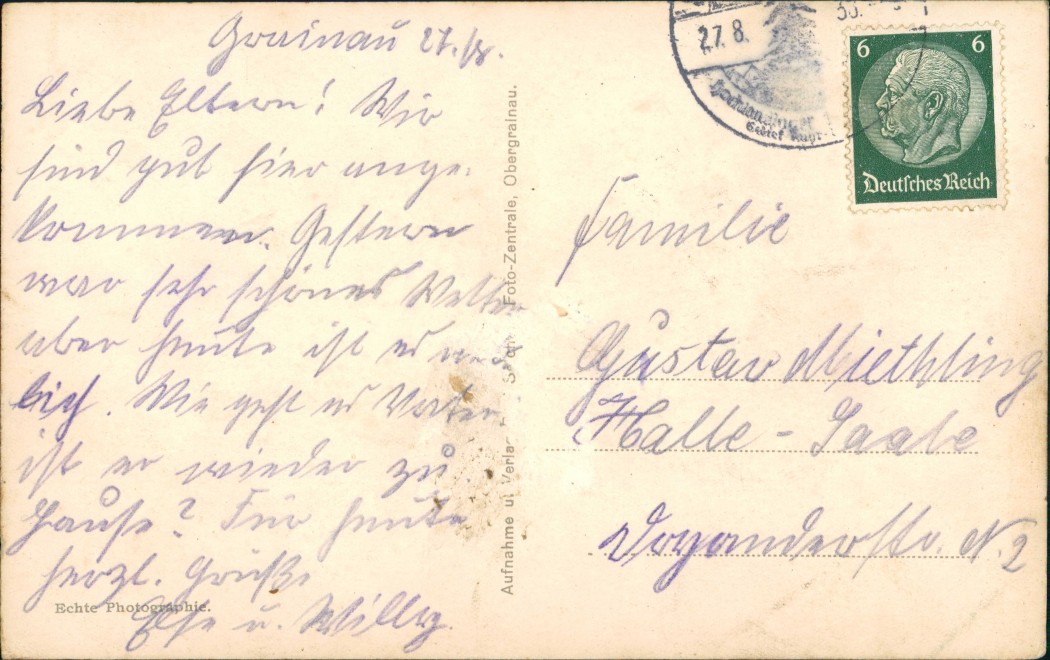 Grainau 27./8.
Liebe Eltern! Wir
sind gut hier ange-
kommen. Gestern
war sehr schönes Wetter
aber heute ist es
lich. Wie geht es Vater
ist er wieder zu
Hause? Für heute
herzl. Grüße
Else u. Willy.
Echte Photographie.
Aufnahme u. Verla Foto-Zentrale, Obergrainau.
27.8.
6 6
Deutsches Reich
Familie
Gustav Miethling
Halle - Saale
Voyanderstr. N. 2